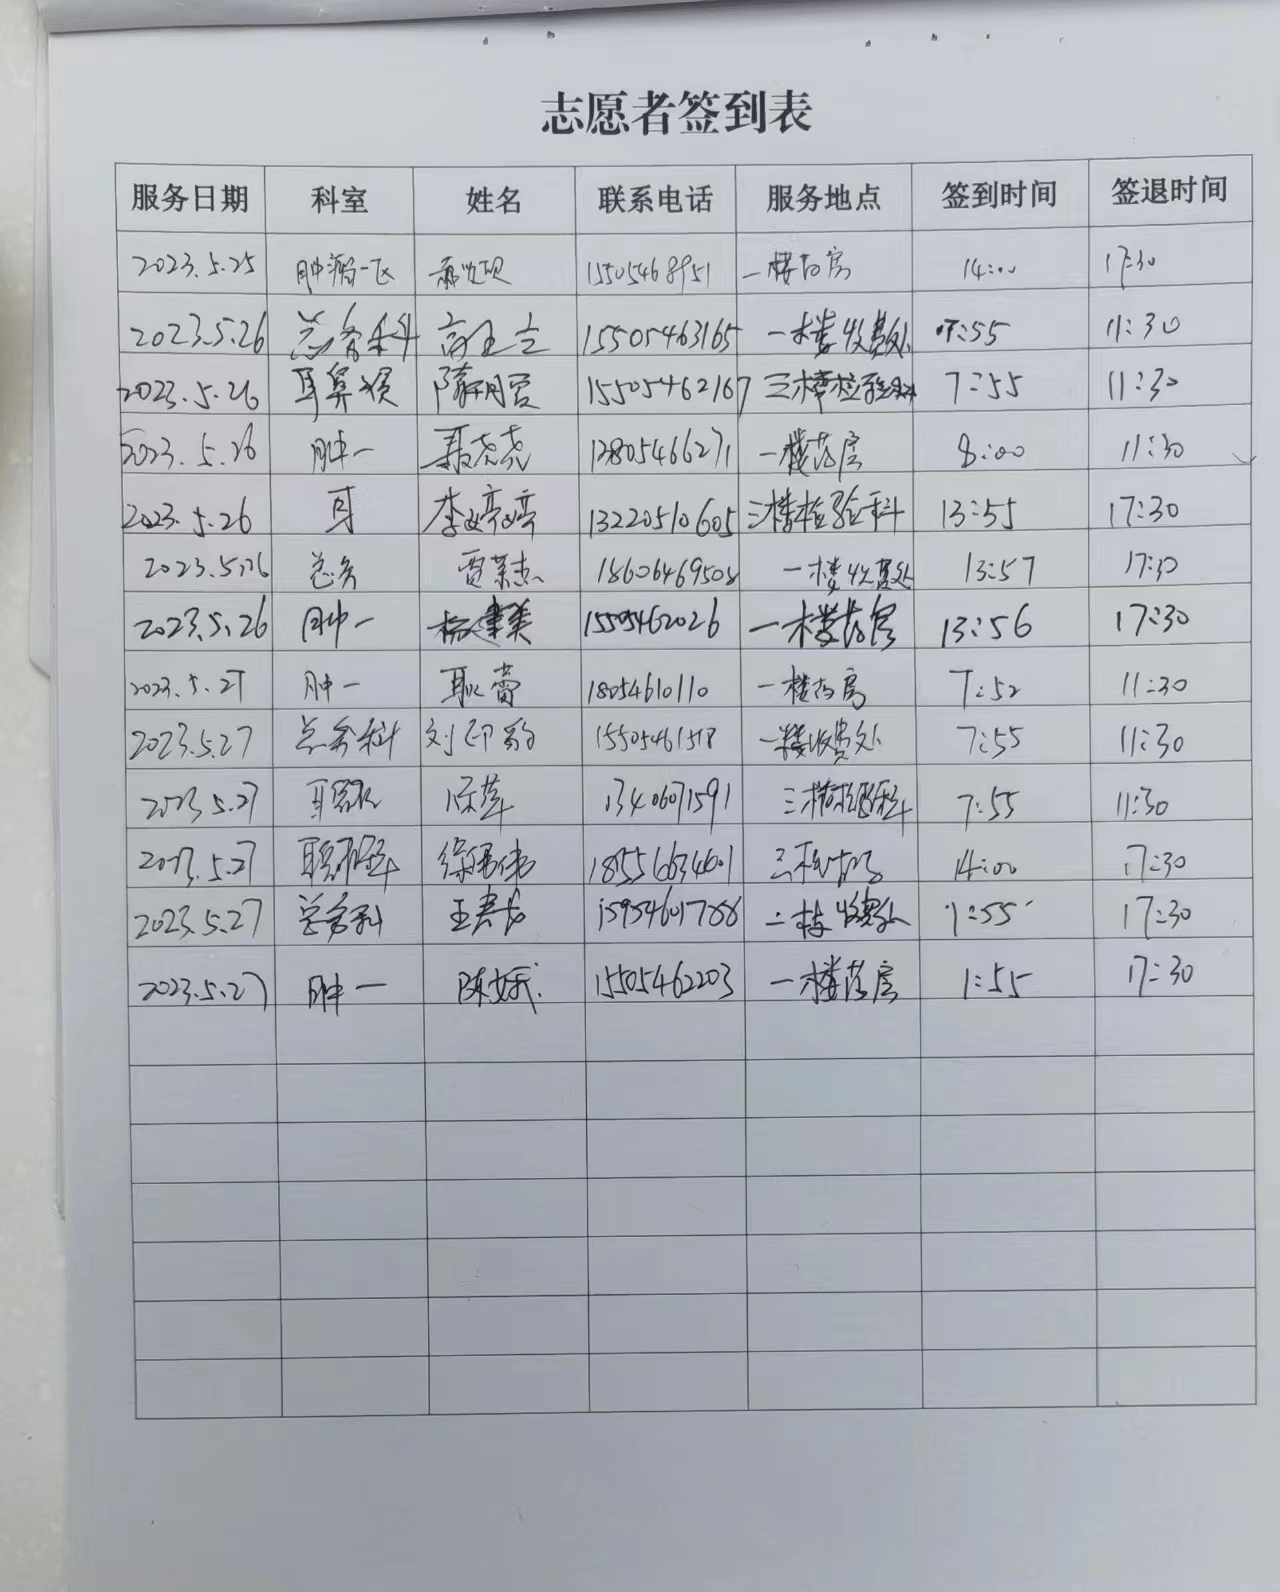 志愿者签到表
服务日期 科室 姓名 联系电话 服务地点 签到时间 签退时间
2023.5.25 肿瘤一区 15505468951 一楼药房 14:00 17:30
2023.5.26 总务科 高玉立 15505463165 一楼收费处 7:55 11:30
2023.5.26 耳鼻喉 隋明君 15505462167 三楼检验科 7:55 11:30
2023.5.26 肿一 聂尧尧 12805466271 一楼药房 8:00 11:30
2023.5.26 耳 李婷婷 13220510605 三楼检验科 13:55 17:30
2023.5.26 总务 贾荣杰 18606469508 一楼收费处 13:57 17:30
2023.5.26 肿一 15505462026 一楼药房 13:56 17:30
2023.5.27 肿一 耿蕾 18054610110 一楼药房 7:52 11:30
2023.5.27 总务科 刘印 15505461518 一楼收费处 7:55 11:30
2023.5.27 13406071591 三楼检验科 7:55 11:30
2023.5.27 徐伟伟 18556634601 14:00 17:30
2023.5.27 总务科 15954601788 收费处 1:55 17:30
2023.5.27 肿一 陈娥 15505462203 一楼药房 1:55 17:30